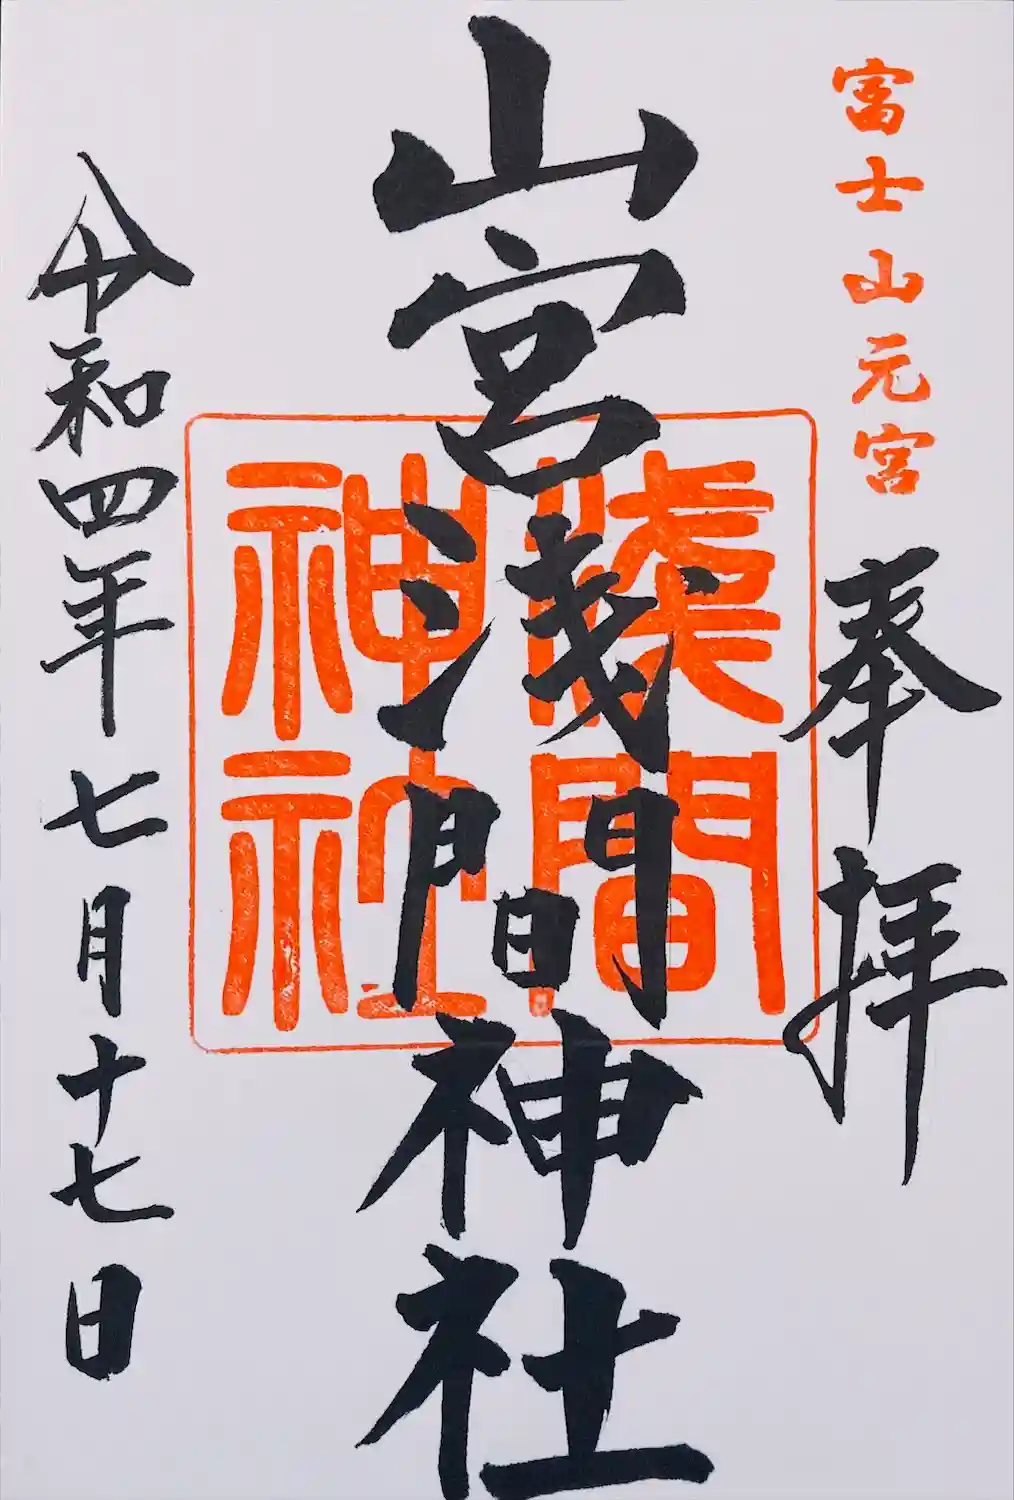 富士山元宮
奉拝
山宮浅間神社
淺間
神社
令和四年七月十七日